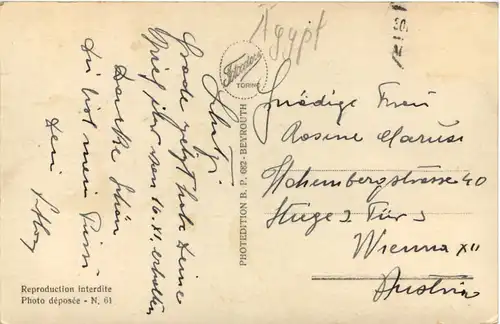 Ägypt
Fotocelere
TORINO
Schatzi.
Grade jetzt hab Deine
Brief ihr von 16.XI. erhalten
Danke schön
Du bist mein Pussi
Dein
PHOTEDITION B. P. 682 - BEYROUTH
Gnädige Frau
Rosine Maruse
Hohenbergstrasse 40
Stiege 2 Tür 3
Wienna XII
Austria
Reproduction interdite
Photo déposée - N. 61